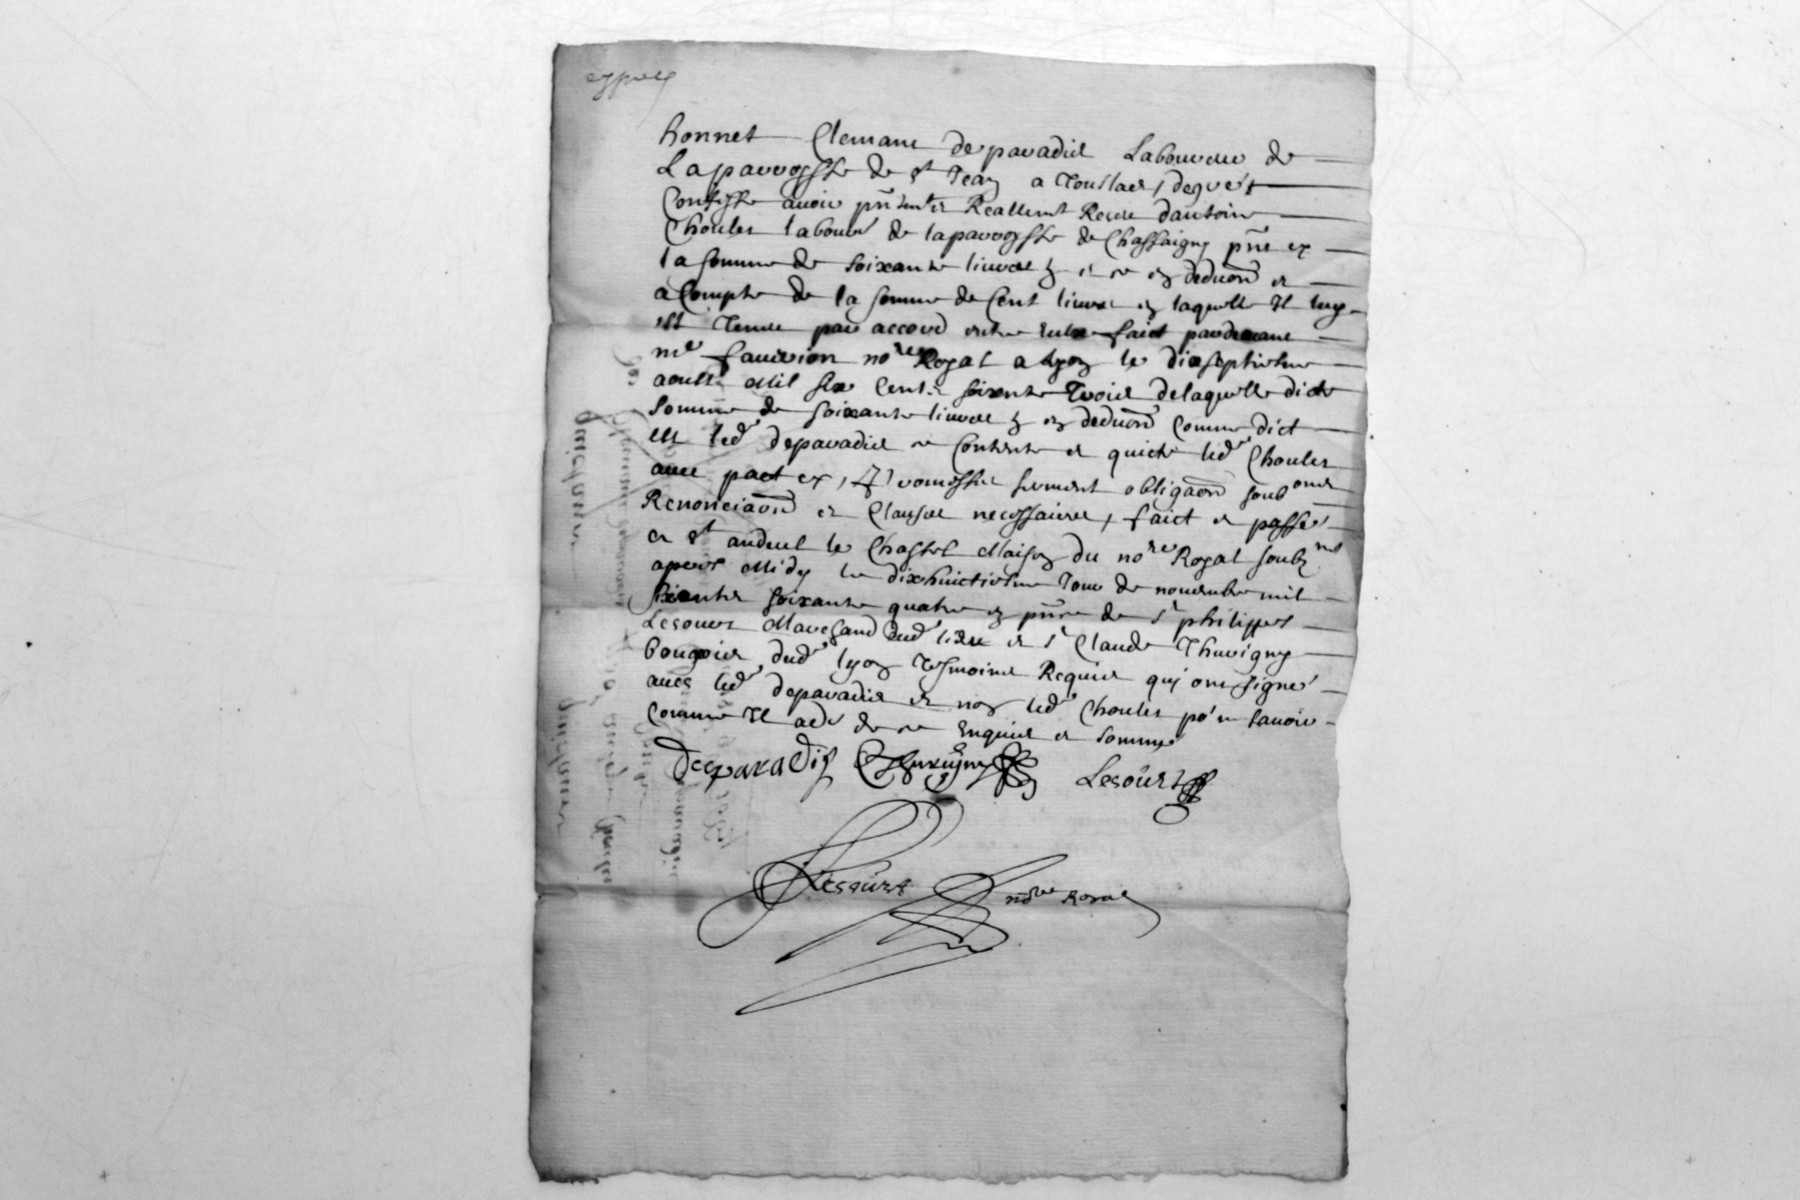 honnet Clemant deparadiz Laboureur de
La parroysse de st Jean a Touslas, degré
Confesse avoir pñtemt Reallemt Receu dantoine
Choulet labour de la parroysse de Chassaigny pñt et
la somme de soixante livres et ce en deduõn et
a Compte de la somme de Cent livres en laquelle Il luy
est Tenu par accord entre Eulx faict pardevant
me favrion nore Royal a lyon le dixseptiesme
aoust Mil six Centz soixente Trois de laquelle dicte
somme de soixante livres en deduõn Comme dict
est led deparadiz se Contente et quicte led Choulet
avec pact et, promesses serment obligaõn soub
Renonciaõn et Clauses necessaires, faict et passé
a st andeol le Chastel Maison du nore Royal soubz né
apres Midy le dixhuictiesme Jour de novembre mil
sixcentz soixante quatre en pñce de sr philippes
Lesourt Marchand dud lieu et sr Claude Thurigny
dud lyon Tesmoins Requis quy ont signé
avec led deparadiz et non led Choulet por ne savoir
comme Il a de ce Enquis et sommé
Deeparadis Thurigny Lesourt
Lesourt nore Royal